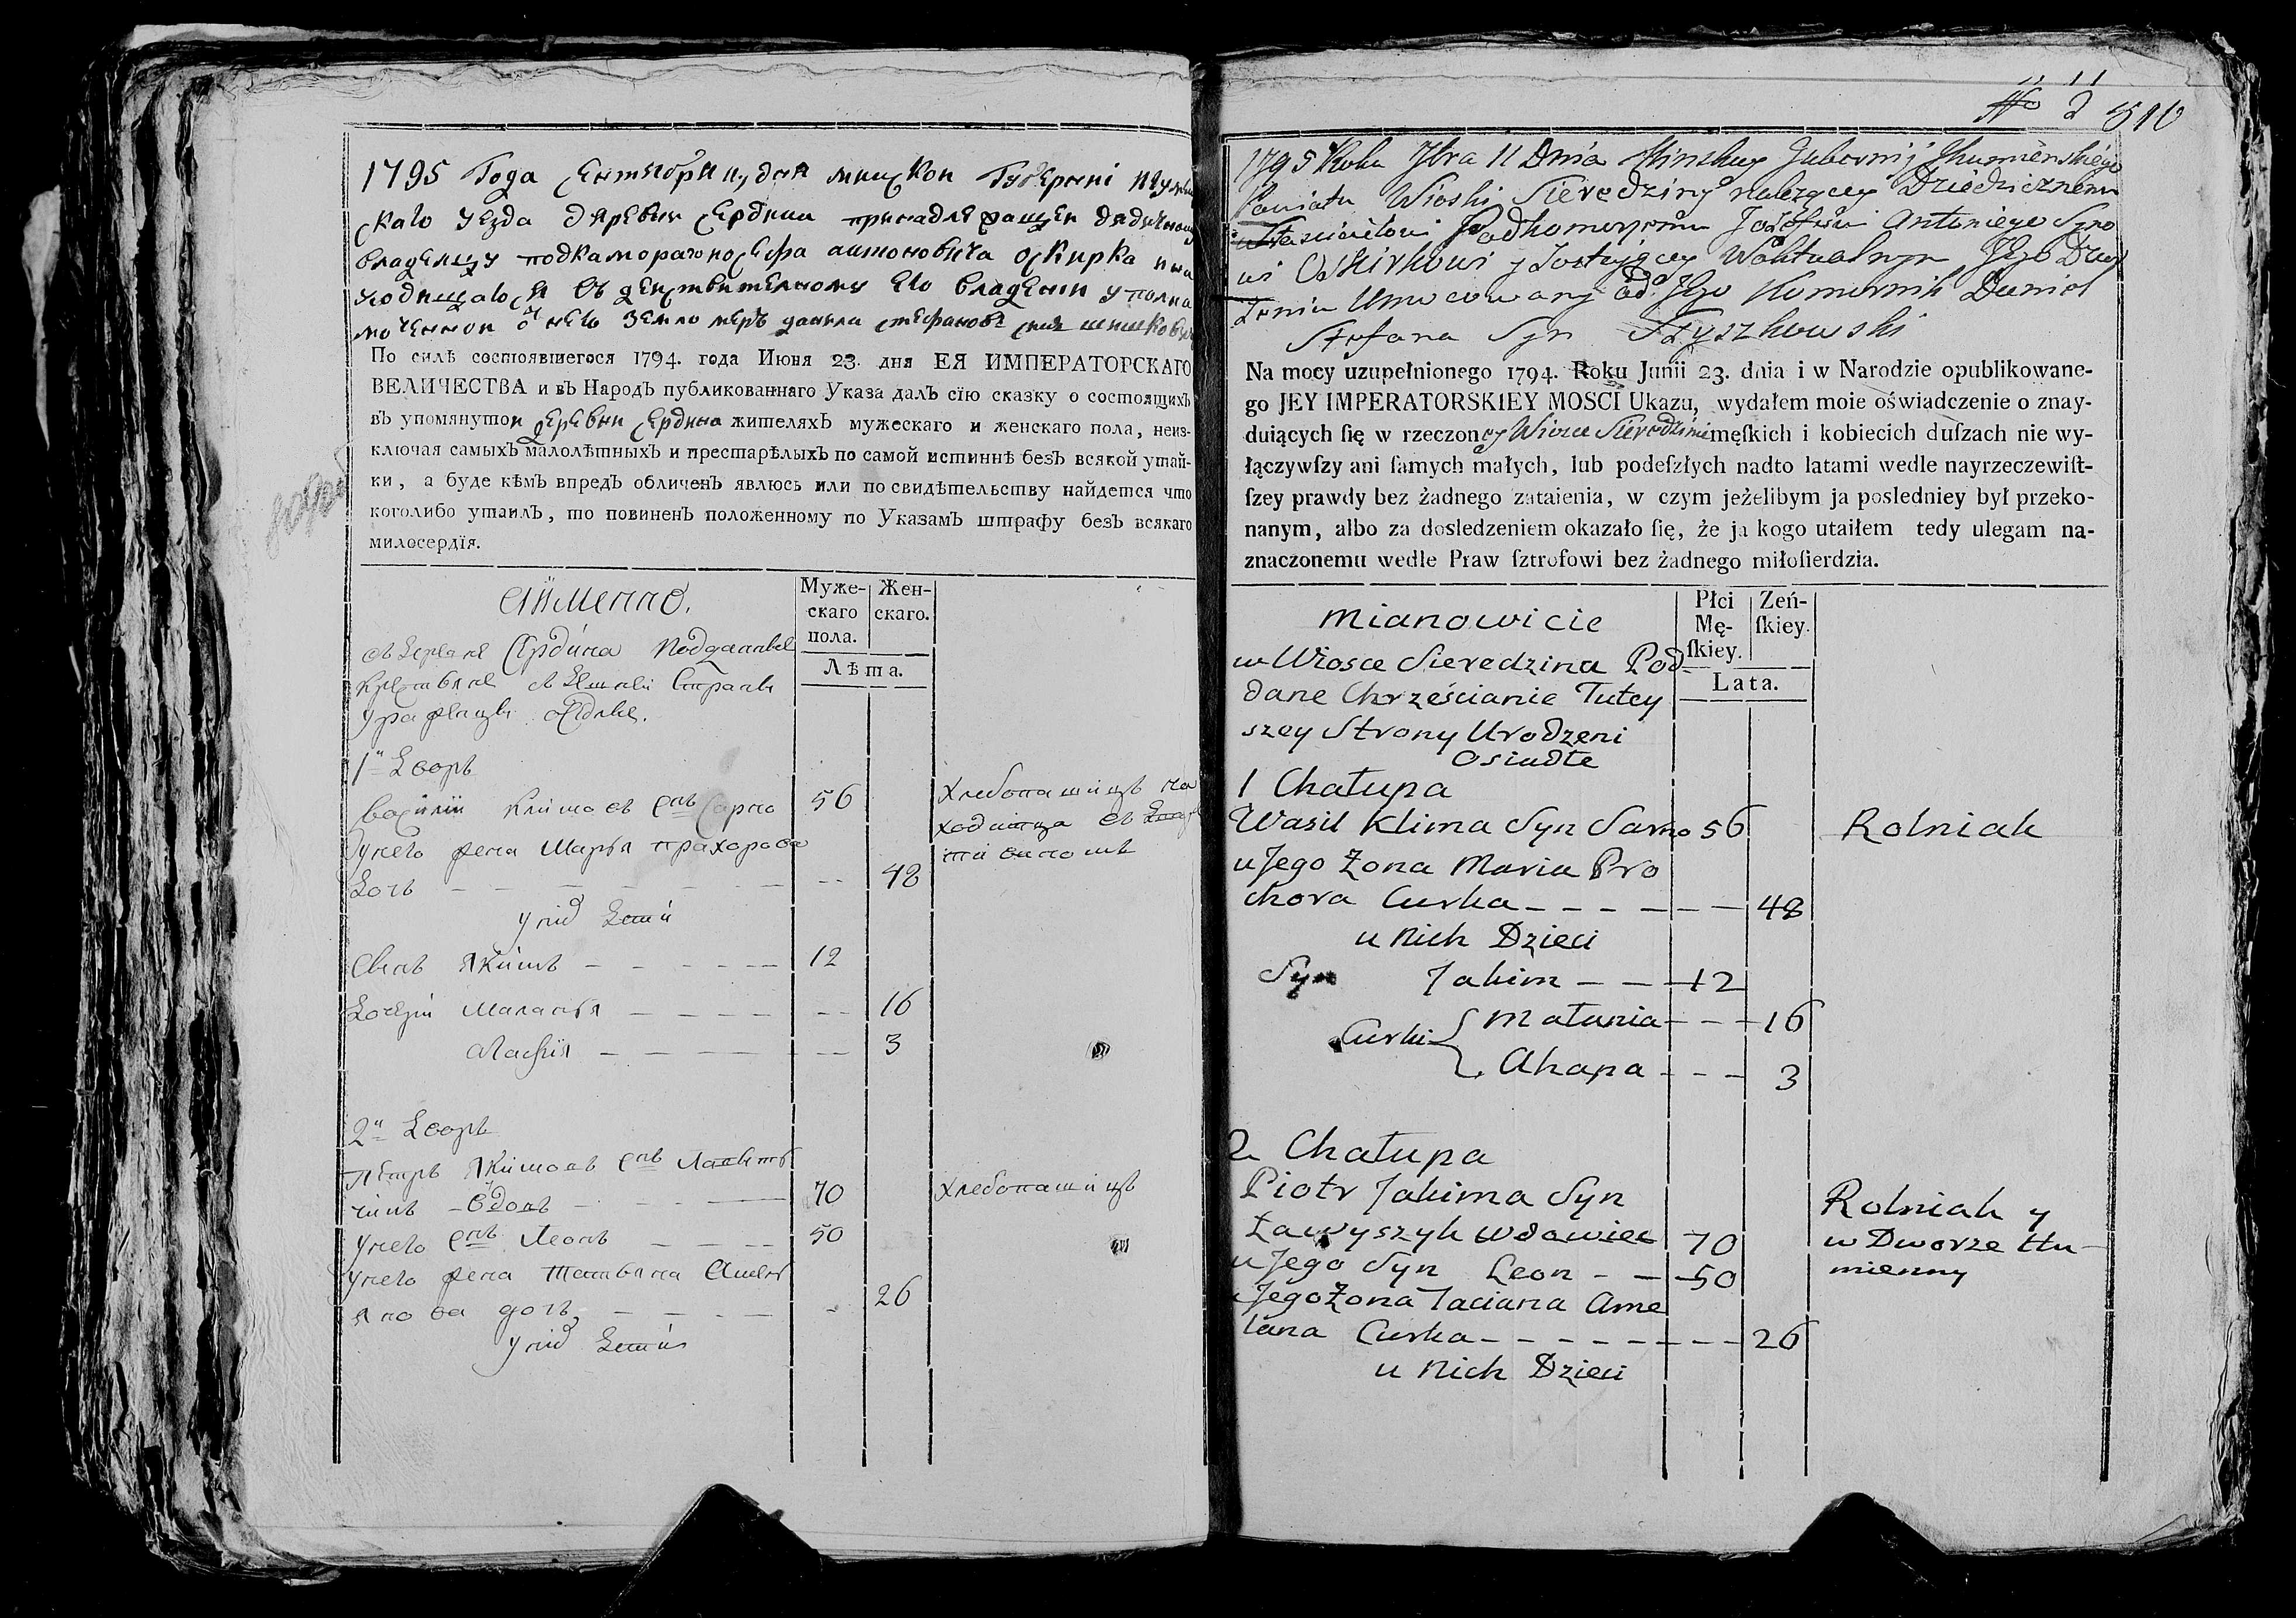 1795 Года Сентября 11 дня Минской Губернии Игумен
скаго уезда деревни Сердина принадлежащей дедичному
владельцу подкаморжому осифа антоновича оскирка и на
ходищагося въ действителному его владении уполна
моченной от него землемеръ данила стефановъ синъ
По силѣ состоявшегося 1794. года Июня 23. дня ЕЯ ИМПЕРАТОРСКАГО
ВЕЛИЧЕСТВА и въ Народъ публикованнаго Указа далъ сїю сказку о состоящихъ
въ упомянутои деревни Сердина жителяхъ мужескаго и женскаго пола, неиз-
ключая самыхъ малолѣтныхъ и престарѣлыхъ по самой истиннѣ безъ всякой утай-
ки, а буде кѣмъ впредъ обличенъ явлюсь или по свидѣтельству найдется что
коголибо утаилъ, то повиненъ положенному по Указамъ штрафу безъ всякаго
милосердїя.
Муже-
скаго
пола.
Жен-
скаго.
Лѣта.
Имменно.
Сердина подданные
1й Дворъ
Василий Климовъ снъ Сарно 56 хлебопашицъ
Унего жена Марья прахорова
дочъ 48
у нихъ дети
Сынъ Якимъ 12
дочери Маланья 16
Агафия 3
2й Дворъ
Петръ Якимовъ снъ
вдовъ 70 хлебопашицъ
Унего снъ Леонъ 50
Унего жена Татьяна Амель
янова дочъ 26
у нихъ дети
11
No 2 510
1795 Roku 7bra 11 Dnia Minskiey Gubernij Jhumenskiego
Powiatu Wioski Sieredziny należącey Dziedzicznemu
Właścicielowi Podkomorzemu Jozefowi Antoniego Syno
wi Oskirkowi y zostającey w aktualnym Jego Dzier
żeniu Umocowany od Jego Komornik Daniel
Stefana Syn Szyszkowski
Na mocy uzupełnionego 1794. Roku Junii 23. dnia i w Narodzie opublikowane-
go JEY IMPERATORSKIEY MOSCI Ukazu, wydałem moie oświadczenie o znay-
duiących ſię w rzeczoney Wiosce Sieredzinie męſkich i kobiecich duſzach nie wy-
łączywſzy ani ſamych małych, lub podeſzłych nadto latami wedle nayrzeczewiſt-
ſzey prawdy bez żadnego zataienia, w czym jeżelibym ja posledniey był przeko-
nanym, albo za dosledzeniem okazało ſię, że ja kogo utaiłem tedy ulegam na-
znaczonemu wedle Praw ſztrofowi bez żadnego miłoſierdzia.
Płci
Mę-
ſkiey.
Zeń-
ſkiey.
Lata.
Mianowicie
w Wiosce Sieredzina Pod-
dane Chrześcianie Tutey
szey Strony Urodzeni
Osiadłe
1 Chałupa
Wasil Klima Syn Sarno 56 Rolniak
u Jego Żona Maria Pro
chora Curka 48
u Nich Dzieci
Syn Jakim 12
Curki Małania 16
Ahapa 3
2 Chałupa
Piotr Jakima Syn Rolniak y
Ławyszyk wdowiec 70 w Dworze Hu-
u Jego Syn Leon 50 mienny
u Jego Żona Taciana Ame
lana Curka 26
u Nich Dzieci